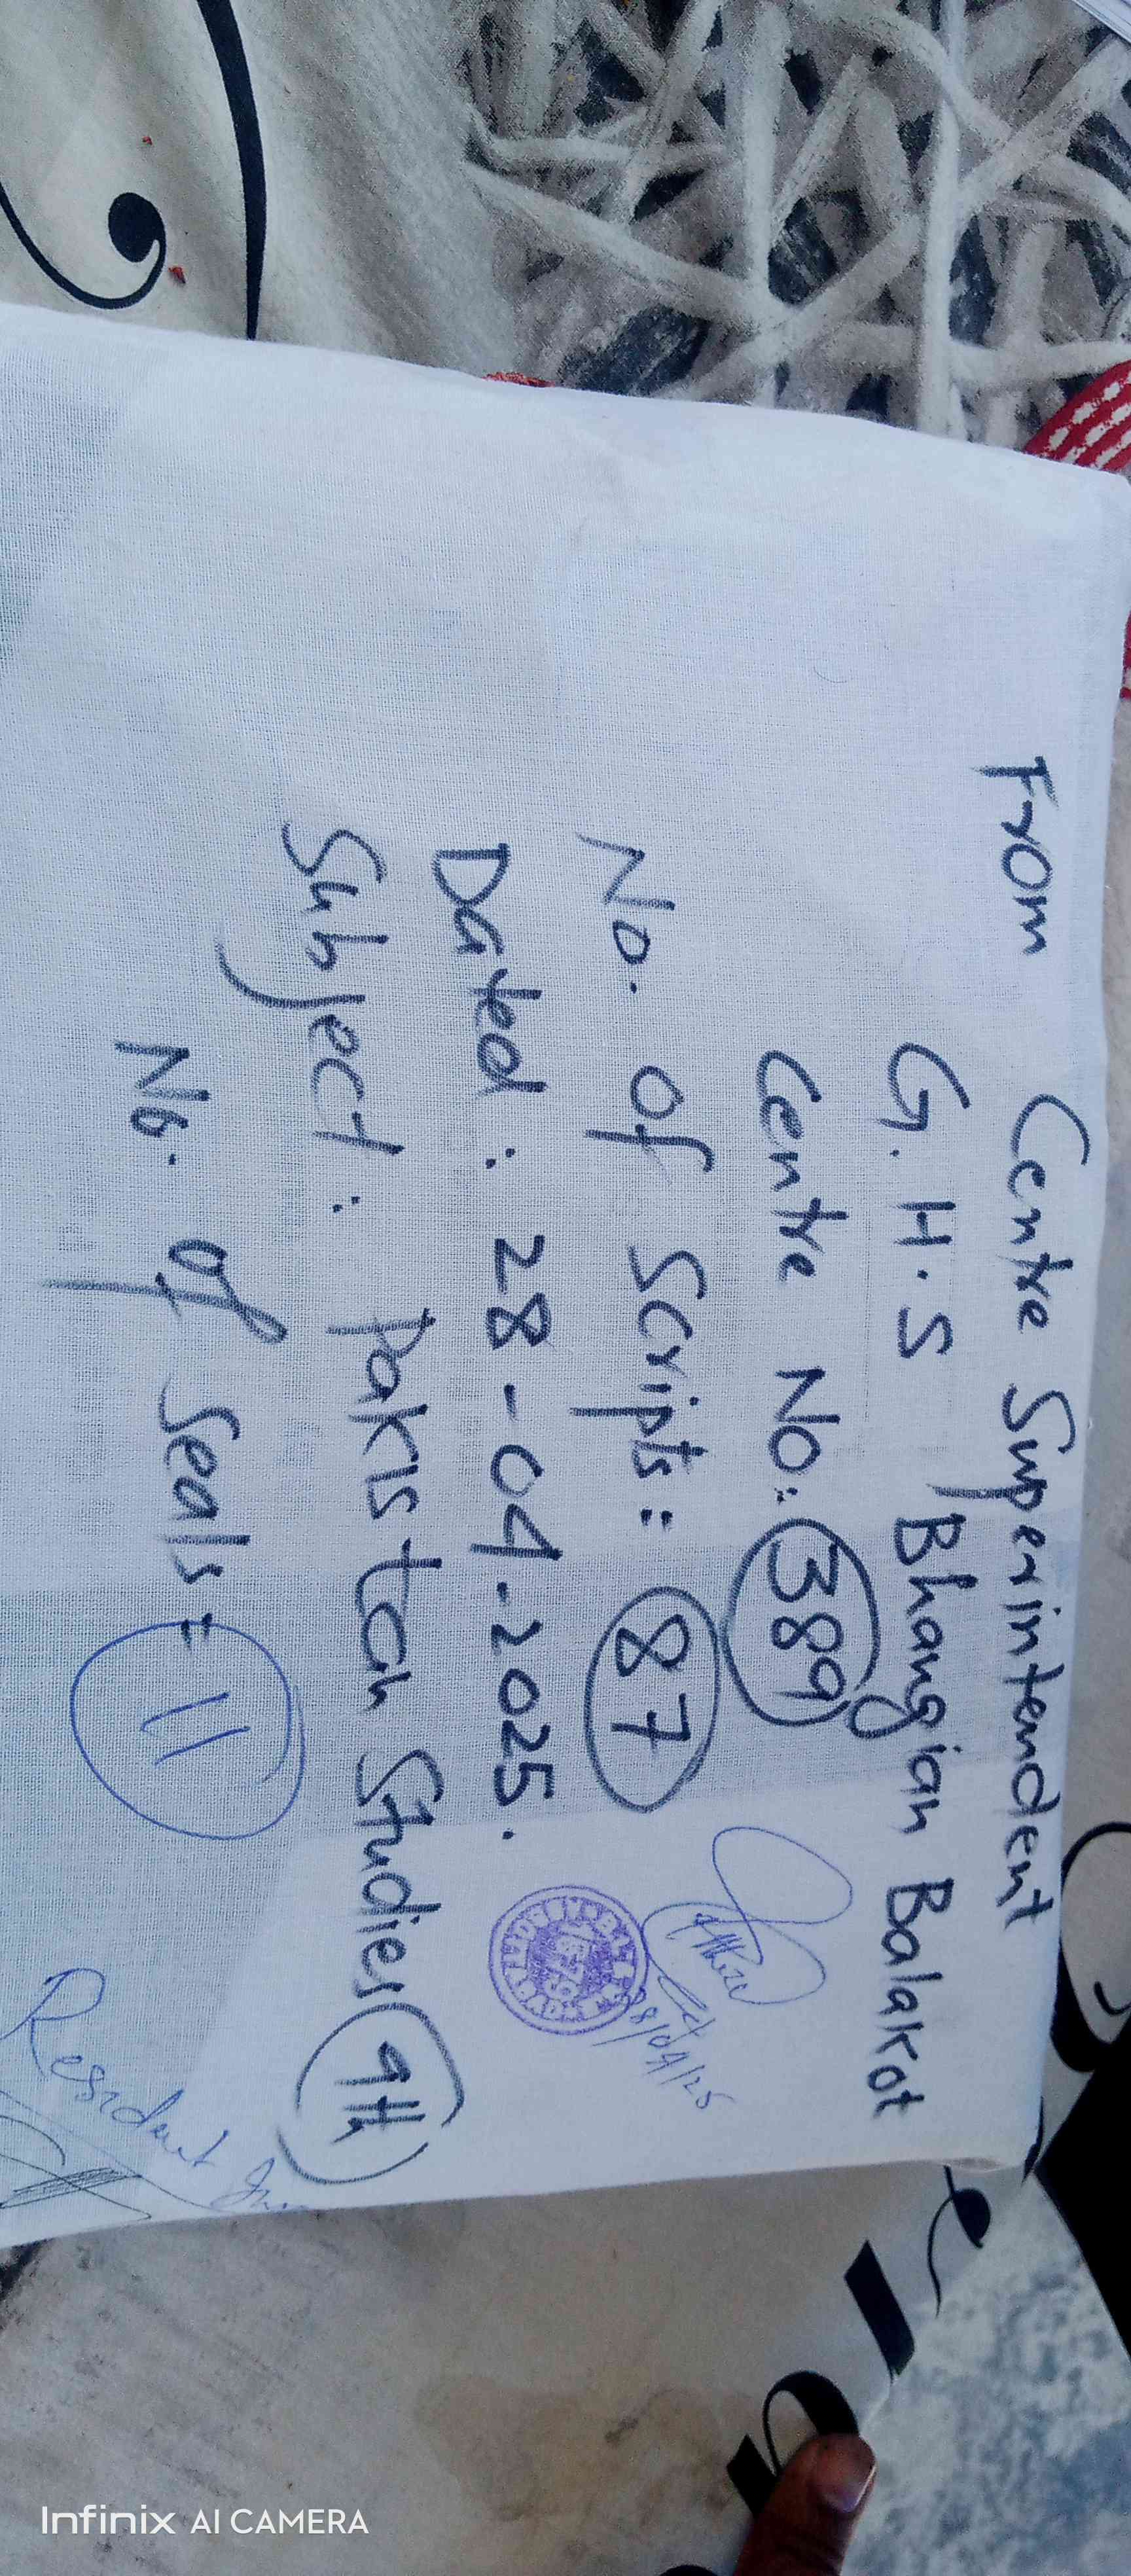 From Centre Superintendent
G.H.S Bhangian Balakot
Centre No: 389
No. of Scripts: 87
Dated: 28-04-2025.
Subject: Pakistan Studies 9th
No. of Seals = 11
28/04/25
Resident
Infinix AI CAMERA